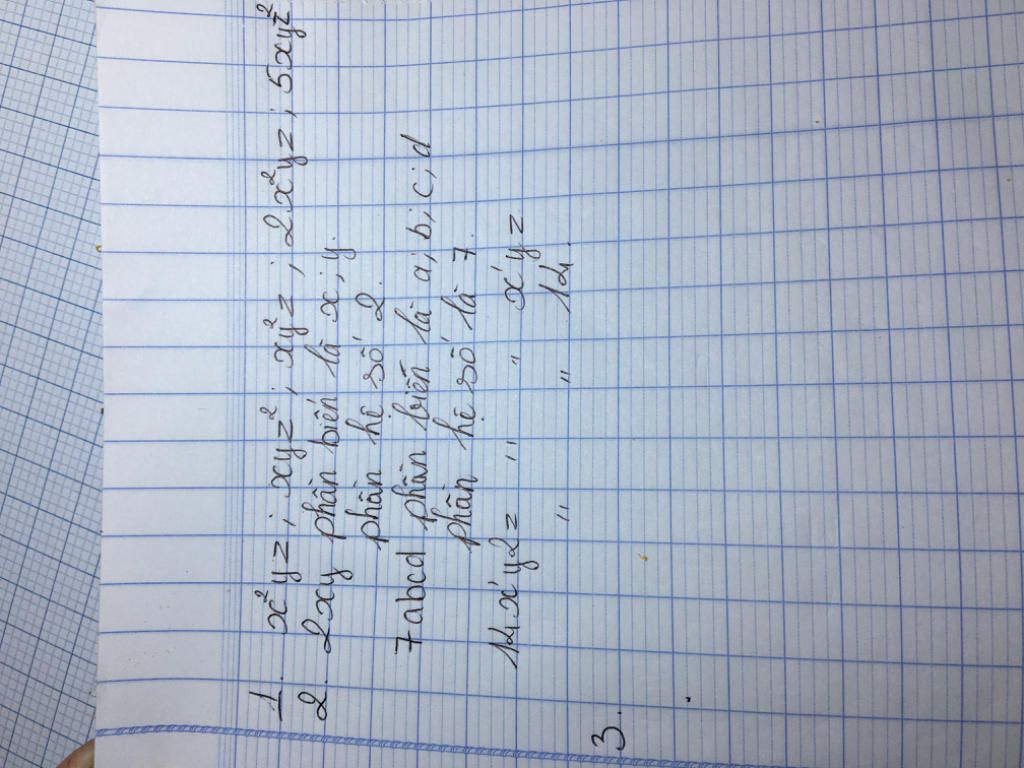 1. x²yz; xyz²; xy²z; 2x²yz; 5xyz²
2. 2xy phần biến là x; y.
phần hệ số 2.
7abcd phần biến là a; b; c; d
phần hệ số là 7.
14x'y2z " " x'yz
" " 14.
3.